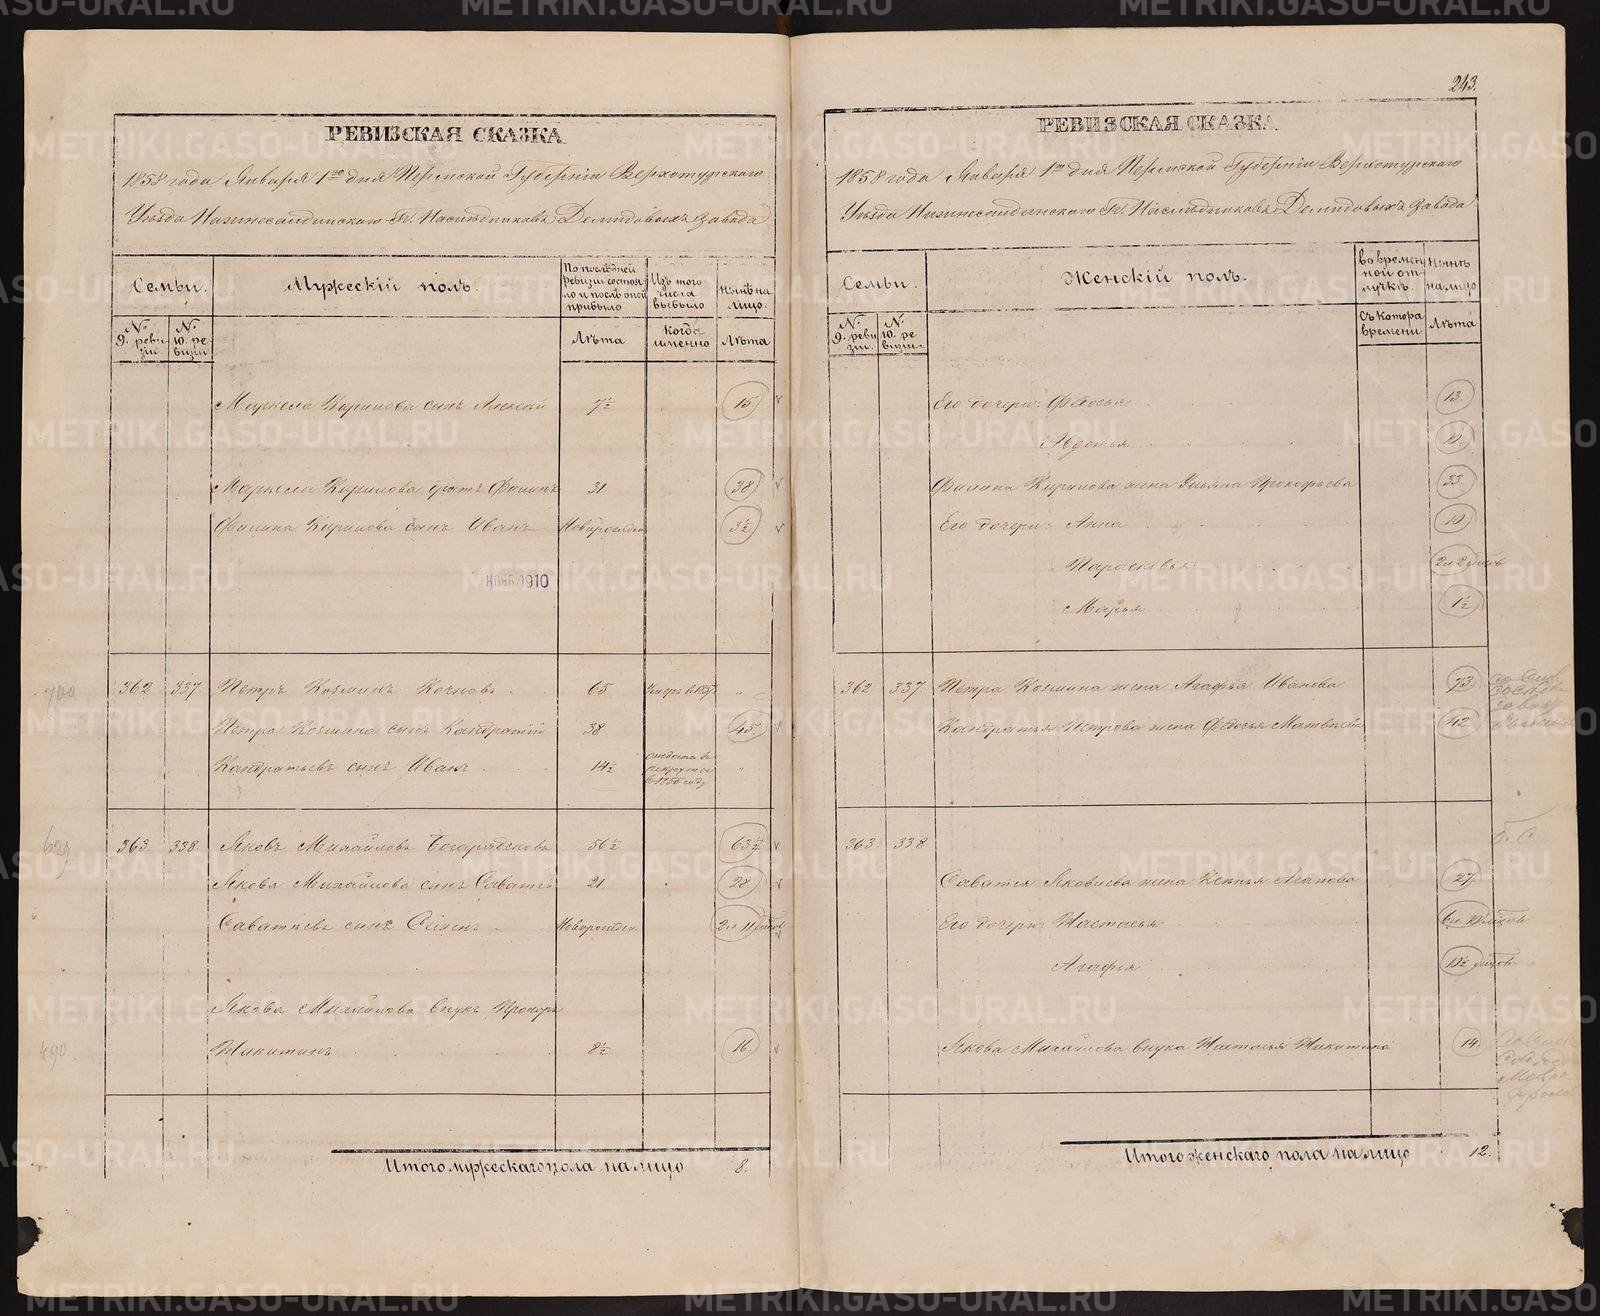 243.
РЕВИЗСКАЯ СКАЗКА
1858 года Января 1го дня Пермской Губернiи Верхотурскаго
Уѣзда Нижнесалдинскаго Гг. Наслѣдниковъ Демидовыхъ завода
Семьи. Мужескiй полъ. По послѣдней ревизiи состояло и послѣ оной прибыло Изъ того числа выбыло Нынѣ на лицо.
№ 9. ревизiи № 10. ревизiи Лѣта когда именно Лѣта
Маркела Кирилова сынъ Алексѣй 7½ 15.
Маркела Кирилова братъ Филипъ 31. 38
Филипа Кирилова сынъ Иванъ Новорожден 3½
НОНБ 1910
700 362 337 Петръ Козминъ 65 Умеръ в 1857 "
Петра Козмина сынъ Кандратiй 38 45.
Кандратьевъ сынъ Иванъ 14½ отданъ въ рекруты въ году "
629 363 338. Яковъ Михайловъ 56½ 63½
Якова Михайлова сынъ Саватiй 21. 28
Саватiевъ сынъ Новорожден 2 и 11
Якова Михайлова внукъ
490 Никитинъ 8½ 16.
Итого мужескаго пола на лицо 8.
РЕВИЗСКАЯ СКАЗКА
1858 года Января 1го дня Пермской Губернiи Верхотурскаго
Уѣзда Нижнесалдинскаго Гг. Наслѣдниковъ Демидовыхъ завода
Семьи. Женскiй полъ. во временной отлучкѣ. Нынѣ на лицо
№ 9. ревизiи. № 10. ревизiи. Съ котора времени Лѣта
Его дочери: Федосья 13
Авдотья 10.
Филипа Кирилова жена Ульяна Прокофьева 33.
Его дочери: Анна 10
Парасковья 2 и 2
Марья 1½
362 337. Петра Козмина жена Агафья Иванова 73
Кандратья Петрова жена Федосья Матвѣева 42
363 338
Саватiя Яковлева жена Агапова 27
Его дочери: Настасья 6 и 10
Агафья 11½
Якова Михайлова внука Настасья Никитина 14.
Итого женскаго пола на лицо 12.
METRIKI.GASO-URAL.RU